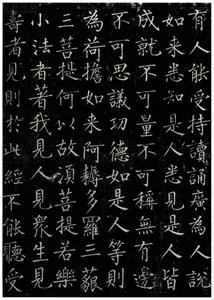 有人能受持讀誦廣為人說
如来悉知是人悉見是人皆
成就不可量不可稱無有邊
不可思議功德如是人等則
為荷擔如来阿耨多羅三藐
三菩提何以故須菩提若樂
小法者著我見人見眾生見
壽者見則於此經不能聽受